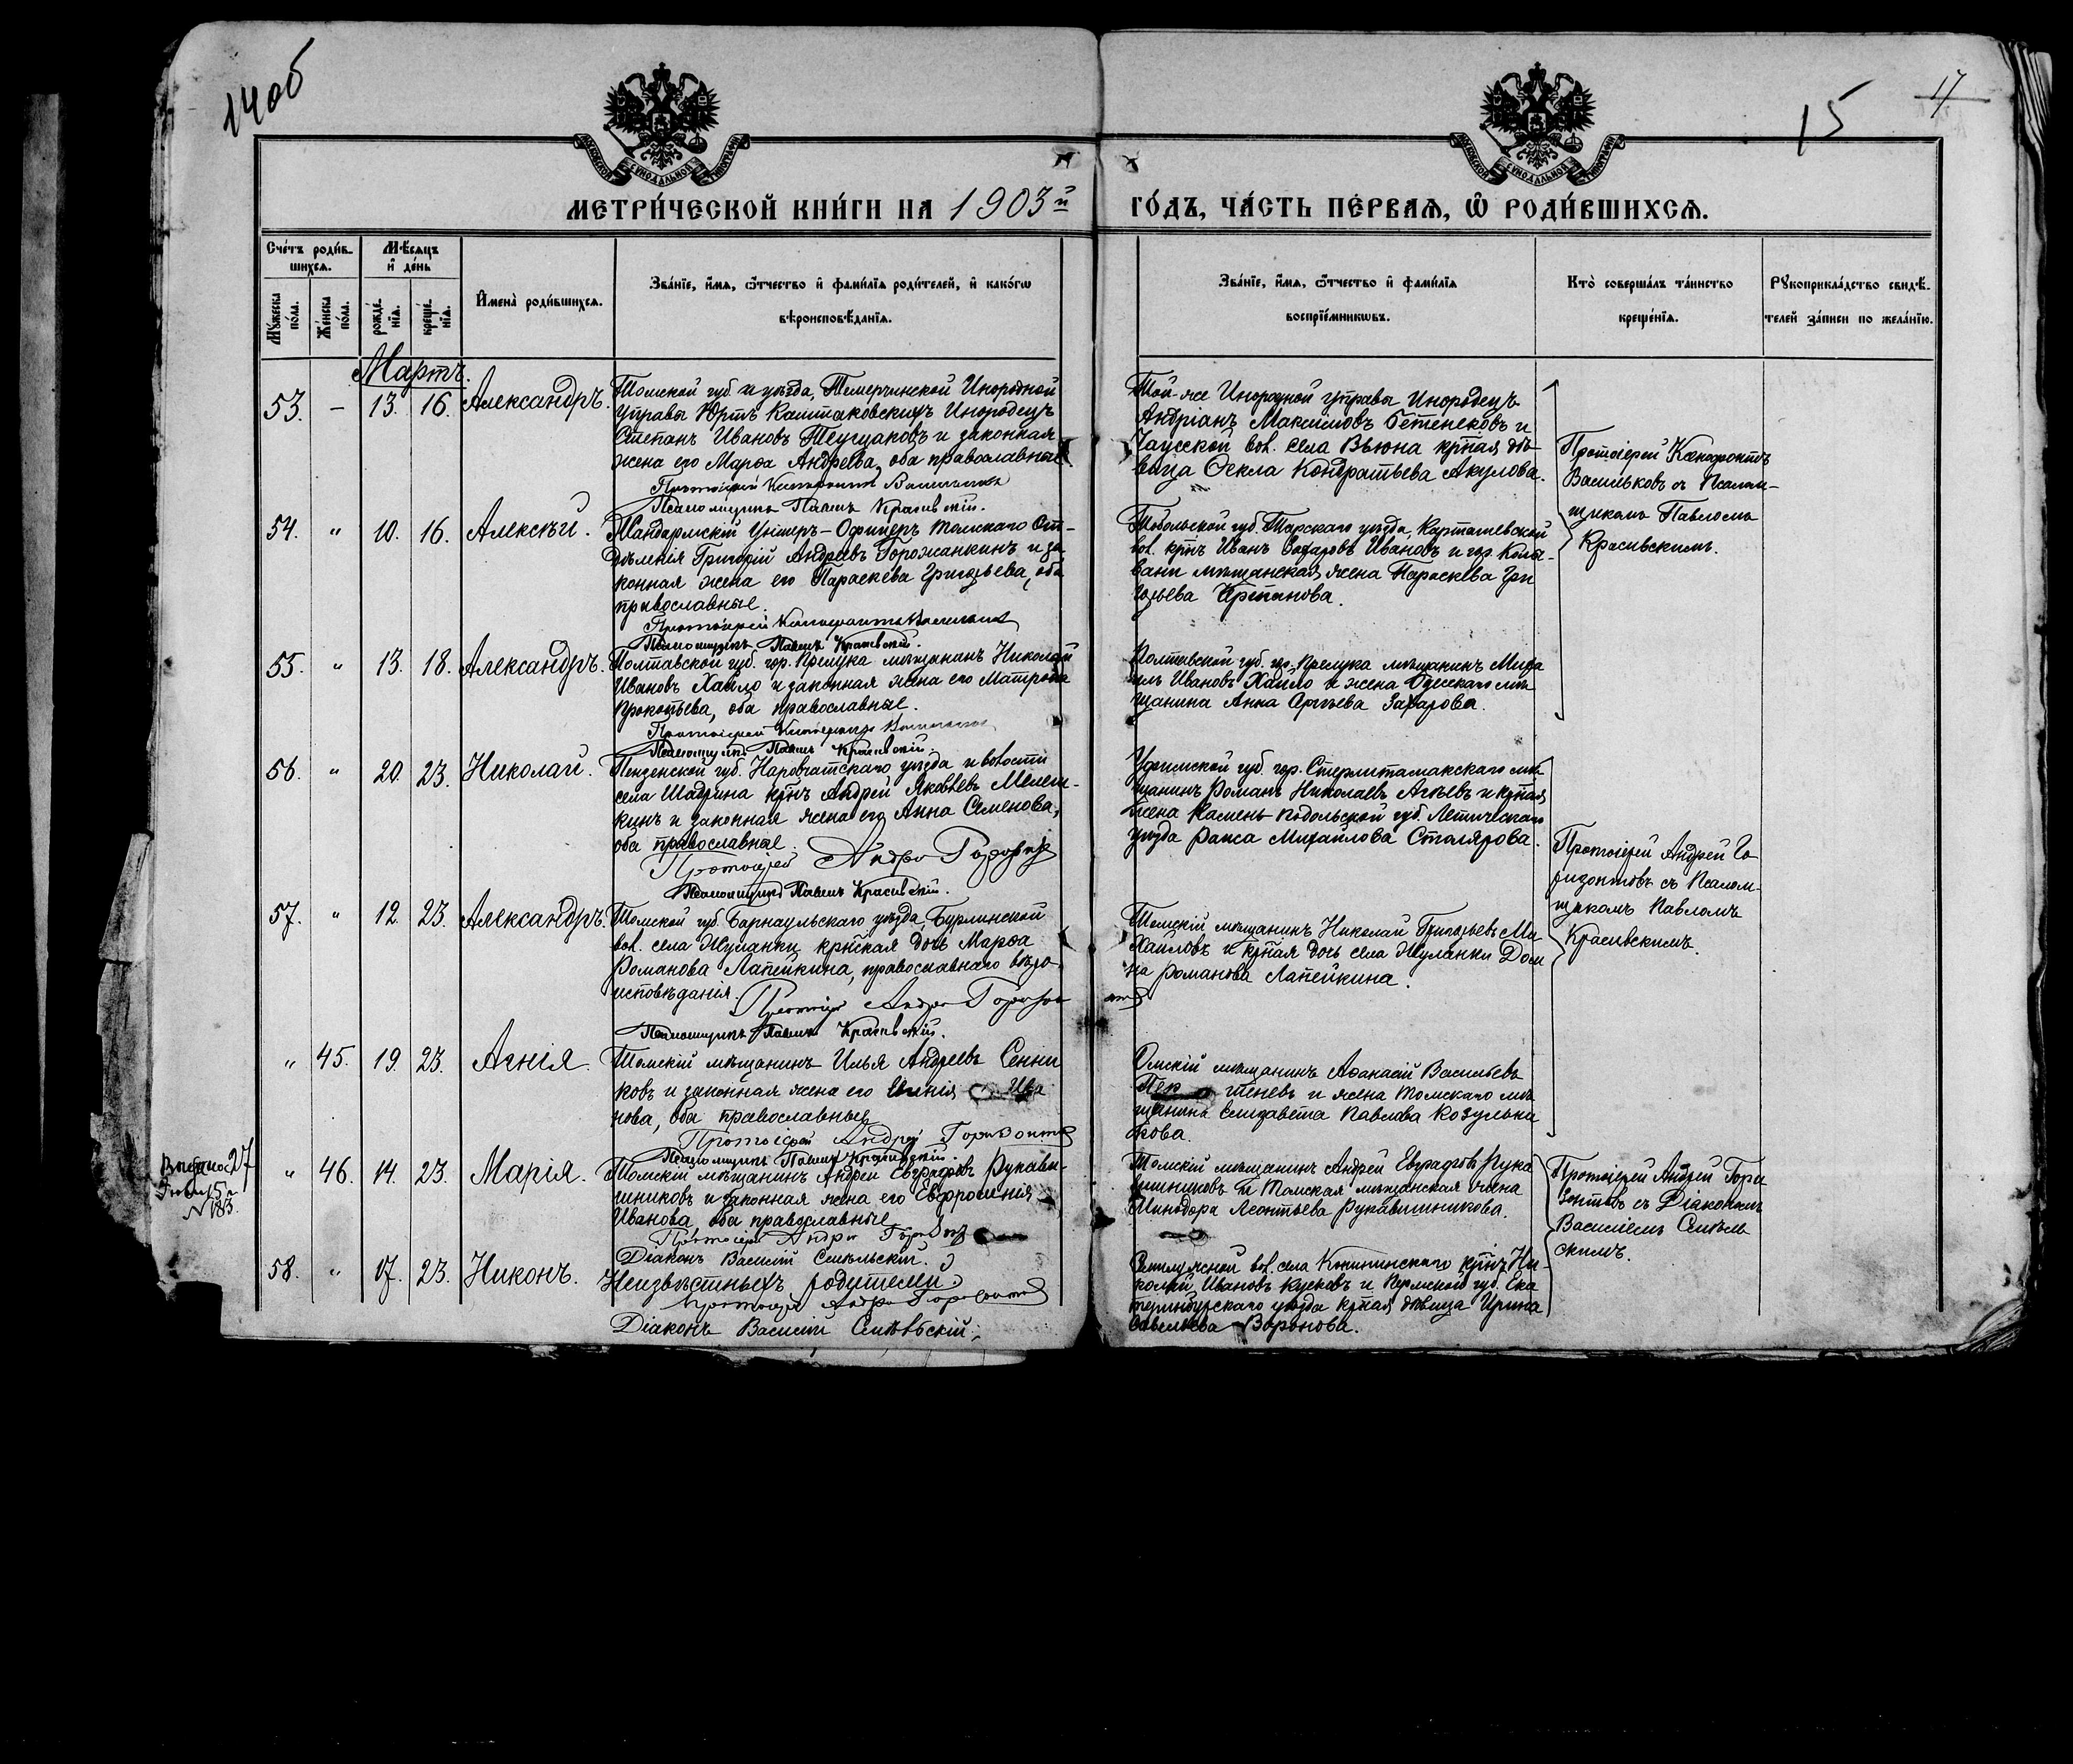 14об
15
17
МОСКОВСКОЙ СѴНОДАЛЬНОЙ ТИПОГРАФІИ
МОСКОВСКОЙ СѴНОДАЛЬНОЙ ТИПОГРАФІИ
МЕТРИ́ЧЕСКОЙ КНИ́ГИ НА 1903й
ГО́ДЪ, ЧА́СТЬ ПЕ́РВАѦ, Ѿ РОДИ́ВШИХСѦ.
Сче́тъ роди́в-
шихсѧ.
Мѣ́сѧцъ
и҆ де́нь
Мꙋ́жеска
по́ла.
Же́нска
по́ла.
рожде́-
нїѧ.
креще́-
нїѧ.
И҆мена̀ роди́вшихсѧ.
Зва́нїе, и҆́мѧ, ѻ҆́тчество и҆ фами́лїѧ роди́телей, и҆ како́гѡ
вѣроисповѣ́данїѧ.
Зва́нїе, и҆́мѧ, ѻ҆́тчество и҆ фами́лїѧ
воспрїе́мникѡвъ.
Кто̀ соверша́лъ та́инство
креще́нїѧ.
Рꙋкоприкла́дство свидѣ́-
телей за́писи по жела́нїю.
Мартъ.
53. – 13. 16. Александръ.
Томской губ. и уѣзда, Темерчинской Инородной
Управы Юртъ Каштаковскихъ Инородецъ
Степанъ Ивановъ Теущаковъ и законная
жена его Марѳа Андреева, оба православные
Протоіерей Ксенофонтъ Васильковъ
Псаломщикъ Павелъ Красивскій.
Той-же Инородной Управы Инородецъ
Андріанъ Максимовъ Бетенековъ и
Чаусской вол. села Вьюна кр̃ная дѣ-
вица Ѳекла Кондратьева Акулова.
Протоіерей Ксенофонтъ
Васильковъ съ Псалом-
щикомъ Павломъ
Красивскимъ.
54. " 10. 16. Алексѣй.
Жандармскій Унтеръ-Офицеръ Томскаго От-
дѣленія Григорій Андреевъ Горожанкинъ и за
конная жена его Параскева Григорьева, оба
православные.
Протоіерей Ксенофонтъ Васильковъ
Псаломщикъ Павелъ Красивскій.
Тобольской губ. Тарскаго уѣзда, Карташевской
вол. кр̃нъ Иванъ Захаровъ Ивановъ и гор. Колы-
вани мѣщанская жена Параскева Гри
горьева
55. " 13. 18. Александръ.
Полтавской губ. гор. Прилука мѣщанинъ Николай
Ивановъ Хайло и законная жена его Матрона
Прокопьева, оба православные.
Протоіерей Ксенофонтъ Васильковъ
Псаломщикъ Павелъ Красивскій.
Полтавской губ. гор. Прилука мѣщанинъ Миха
илъ Ивановъ Хайло и жена Одесскаго мѣ
щанина Анна Сергѣева Захарова.
56. " 20. 23. Николай.
Пензенской губ. Наровчатскаго уѣзда и волости
села Шадрина кр̃нъ Андрей Яковлевъ Мелеш-
кинъ и законная жена его Анна Семенова,
оба православные.
Протоіерей Андрей Горизонтовъ
Псаломщикъ Павелъ Красивскій.
Уфимской губ. гор. Стерлитамакскаго мѣ
щанинъ Романъ Николаевъ Агѣевъ и кр̃ная
жена Камень-Подольской губ. Летичевскаго
уѣзда Раиса Михайлова Столярова.
Протоіерей Андрей Го
ризонтовъ съ Псалом-
щикомъ Павломъ
Красивскимъ.
57. " 12. 23. Александръ.
Томской губ. Барнаульскаго уѣзда, Бурлинской
вол. села Жуланки крн̃ская дочь Марѳа
Романова Лапейкина, православнаго вѣро-
исповѣданія.
Протоіерей Андрей Горизонтовъ
Псаломщикъ Павелъ Красивскій.
Томскій мѣщанинъ Николай Григорьевъ Ми
хайловъ и кр̃ная дочь села Жуланки Дом
на Романова Лапейкина.
" 45. 19. 23. Агнія.
Томскій мѣщанинъ Илья Андреевъ Сенни
ковъ и законная жена его Ива
нова, оба православные
Протоіерей Андрей Горизонтовъ
Псаломщикъ Павелъ Красивскій.
Омскій мѣщанинъ Аѳанасій Васильевъ
и жена Томскаго мѣ
щанина Елизавета Павлова Козульни
кова.
Выдано 27
№ 183.
" 46. 14. 23. Марія.
Томскій мѣщанинъ Андрей Евграфовъ Рукави-
шниковъ и законная жена его Евфросинія
Иванова, оба православные
Протоіерей Андрей Горизонтовъ
Діаконъ Василій Смѣльскій.
Томскій мѣщанинъ Андрей Евграфовъ Рука
вишниковъ и Томская мѣщанская жена
Минодора Леонтьева Рукавишникова.
Протоіерей Андрей Гори
зонтовъ съ Діакономъ
Василіемъ Смѣль
скимъ.
58. " 17. 23. Никонъ.
Неизвѣстныхъ родителей
Протоіерей Андрей Горизонтовъ
Діаконъ Василій Смѣльскій.
Семилужной вол. села Конининскаго кр̃нъ Ни-
колай Ивановъ Кусковъ и Пермской губ. Ека
теринбургскаго уѣзда кр̃ная дѣвица Ирина
Савельева Воронова.